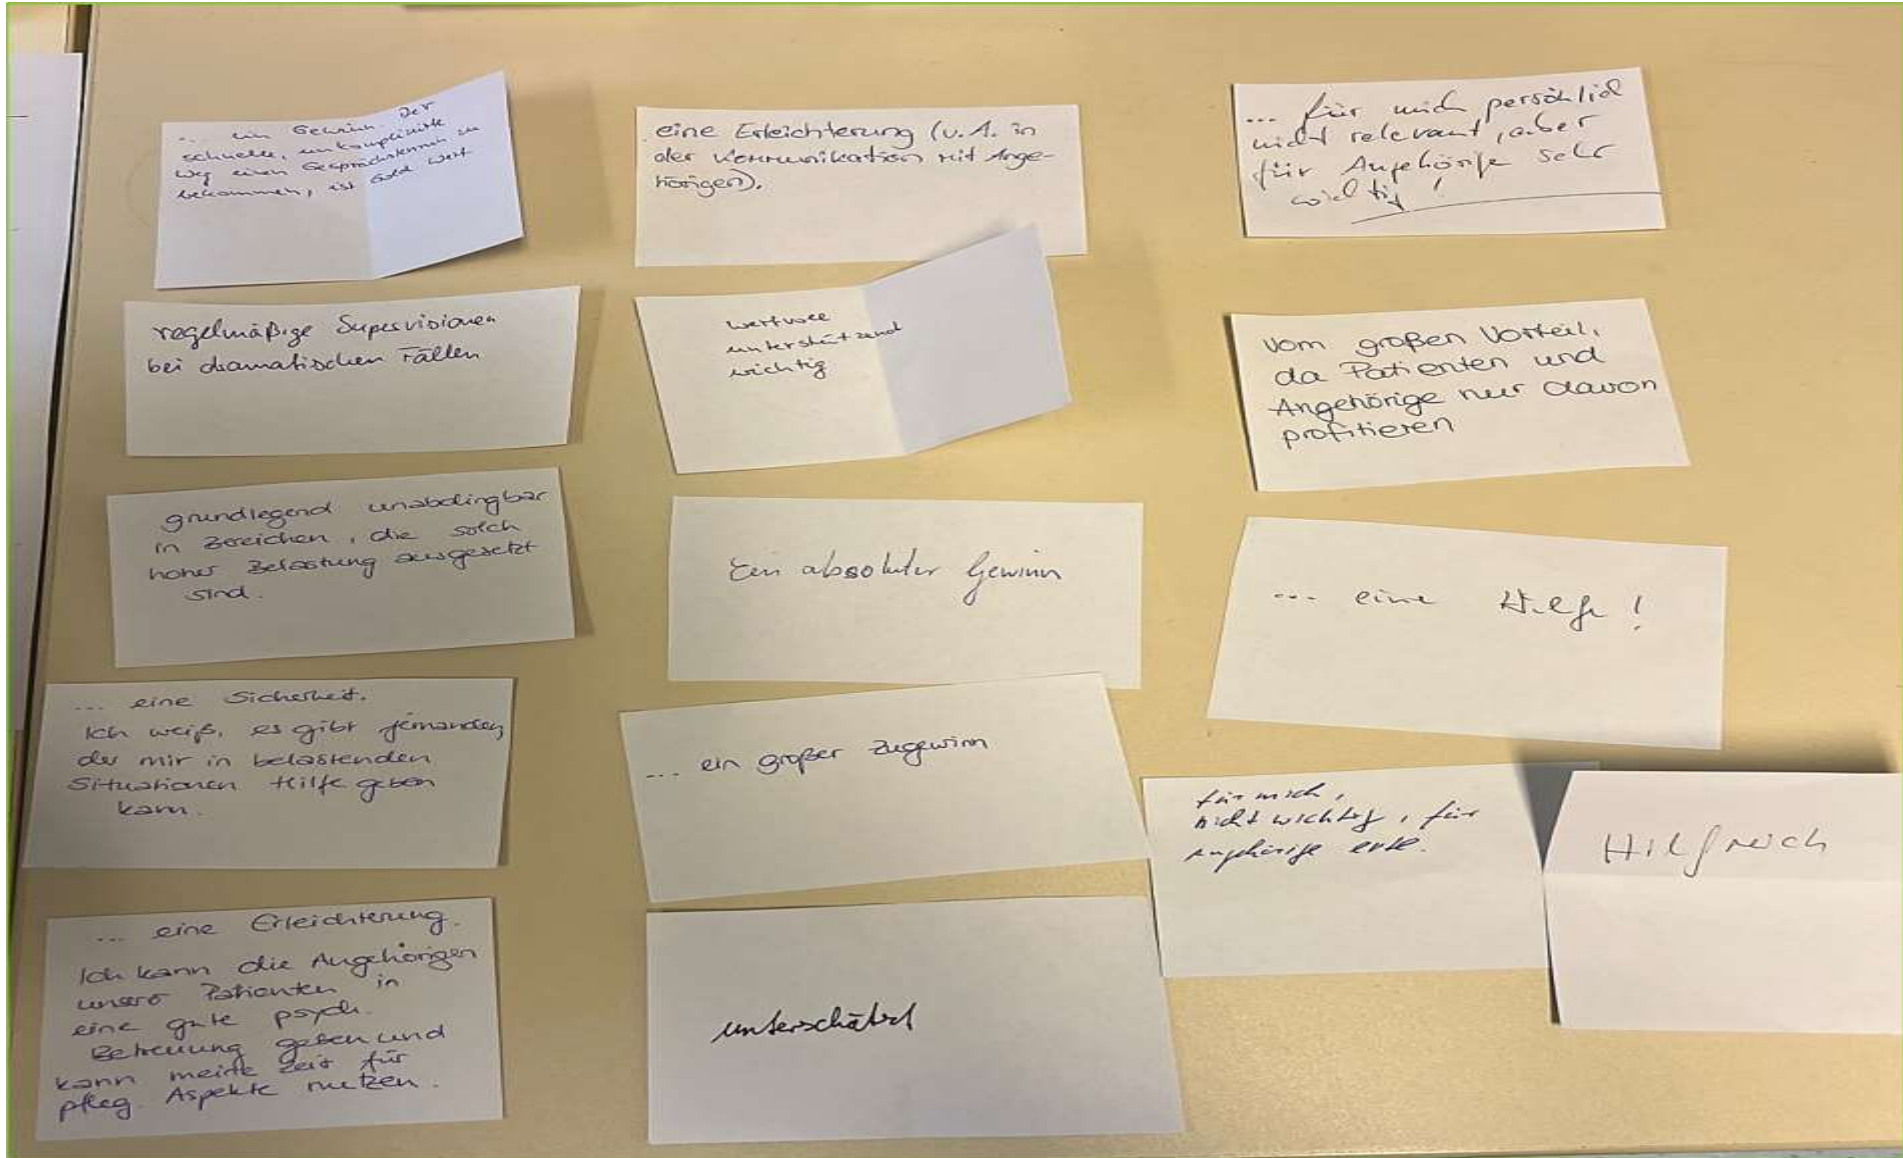 ... ein Gewinn. Der
schnelle, unkomplizierte
Weg einen Gesprächstermin zu
bekommen, ist Gold wert
regelmäßige Supervisionen
bei dramatischen Fällen
grundlegend unabdingbar
in Bereichen, die solch
hoher Belastung ausgesetzt
sind.
... eine Sicherheit.
Ich weiß, es gibt jemanden,
der mir in belastenden
Situationen Hilfe geben
kann.
... eine Erleichterung.
Ich kann die Angehörigen
unserer Patienten in
eine gute psych.
Betreuung geben und
kann meine Zeit für
pfleg. Aspekte nutzen.
eine Erleichterung (v. A. in
der Kommunikation mit Ange-
hörigen).
wertvoll
unterstützend
wichtig
Ein absoluter Gewinn
... ein großer Zugewinn
unterschätzt
... für mich persönlich
nicht relevant, aber
für Angehörige sehr
wichtig!
Vom großen Vorteil,
da Patienten und
Angehörige nur davon
profitieren
... eine Hilfe!
für mich,
nicht wichtig, für
Angehörige
Hilfreich